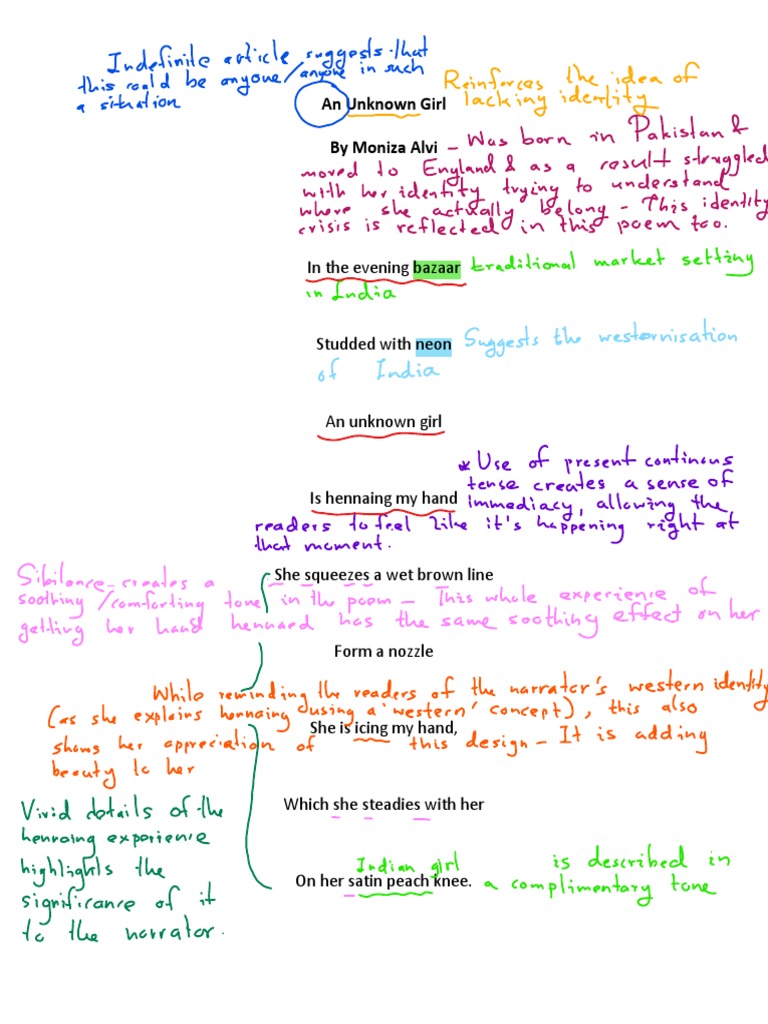 Indefinite article suggests that
this could be anyone/anyone in such
a situation
An Unknown Girl
Reinforces the idea of
lacking identity
By Moniza Alvi – Was born in Pakistan &
moved to England & as a result struggled
with her identity trying to understand
where she actually belong – This identity
crisis is reflected in this poem too.
In the evening bazaar traditional market setting
in India
Studded with neon Suggests the westernisation
of India
An unknown girl
Is hennaing my hand
* Use of present continous
tense creates a sense of
immediacy, allowing the
readers to feel like it's happening right at
that moment.
She squeezes a wet brown line
Sibilance creates a
soothing/comforting tone in the poem – This whole experience of
getting her hand hennaed has the same soothing effect on her
Form a nozzle
While reminding the readers of the narrator's western identity
(as she explains hennaing using a 'western' concept), this also
She is icing my hand,
shows her appreciation of this design – It is adding
beauty to her
Which she steadies with her
Vivid details of the
hennaing experience
highlights the
significance of it
to the narrator.
Indian girl is described in
On her satin peach knee. a complimentary tone